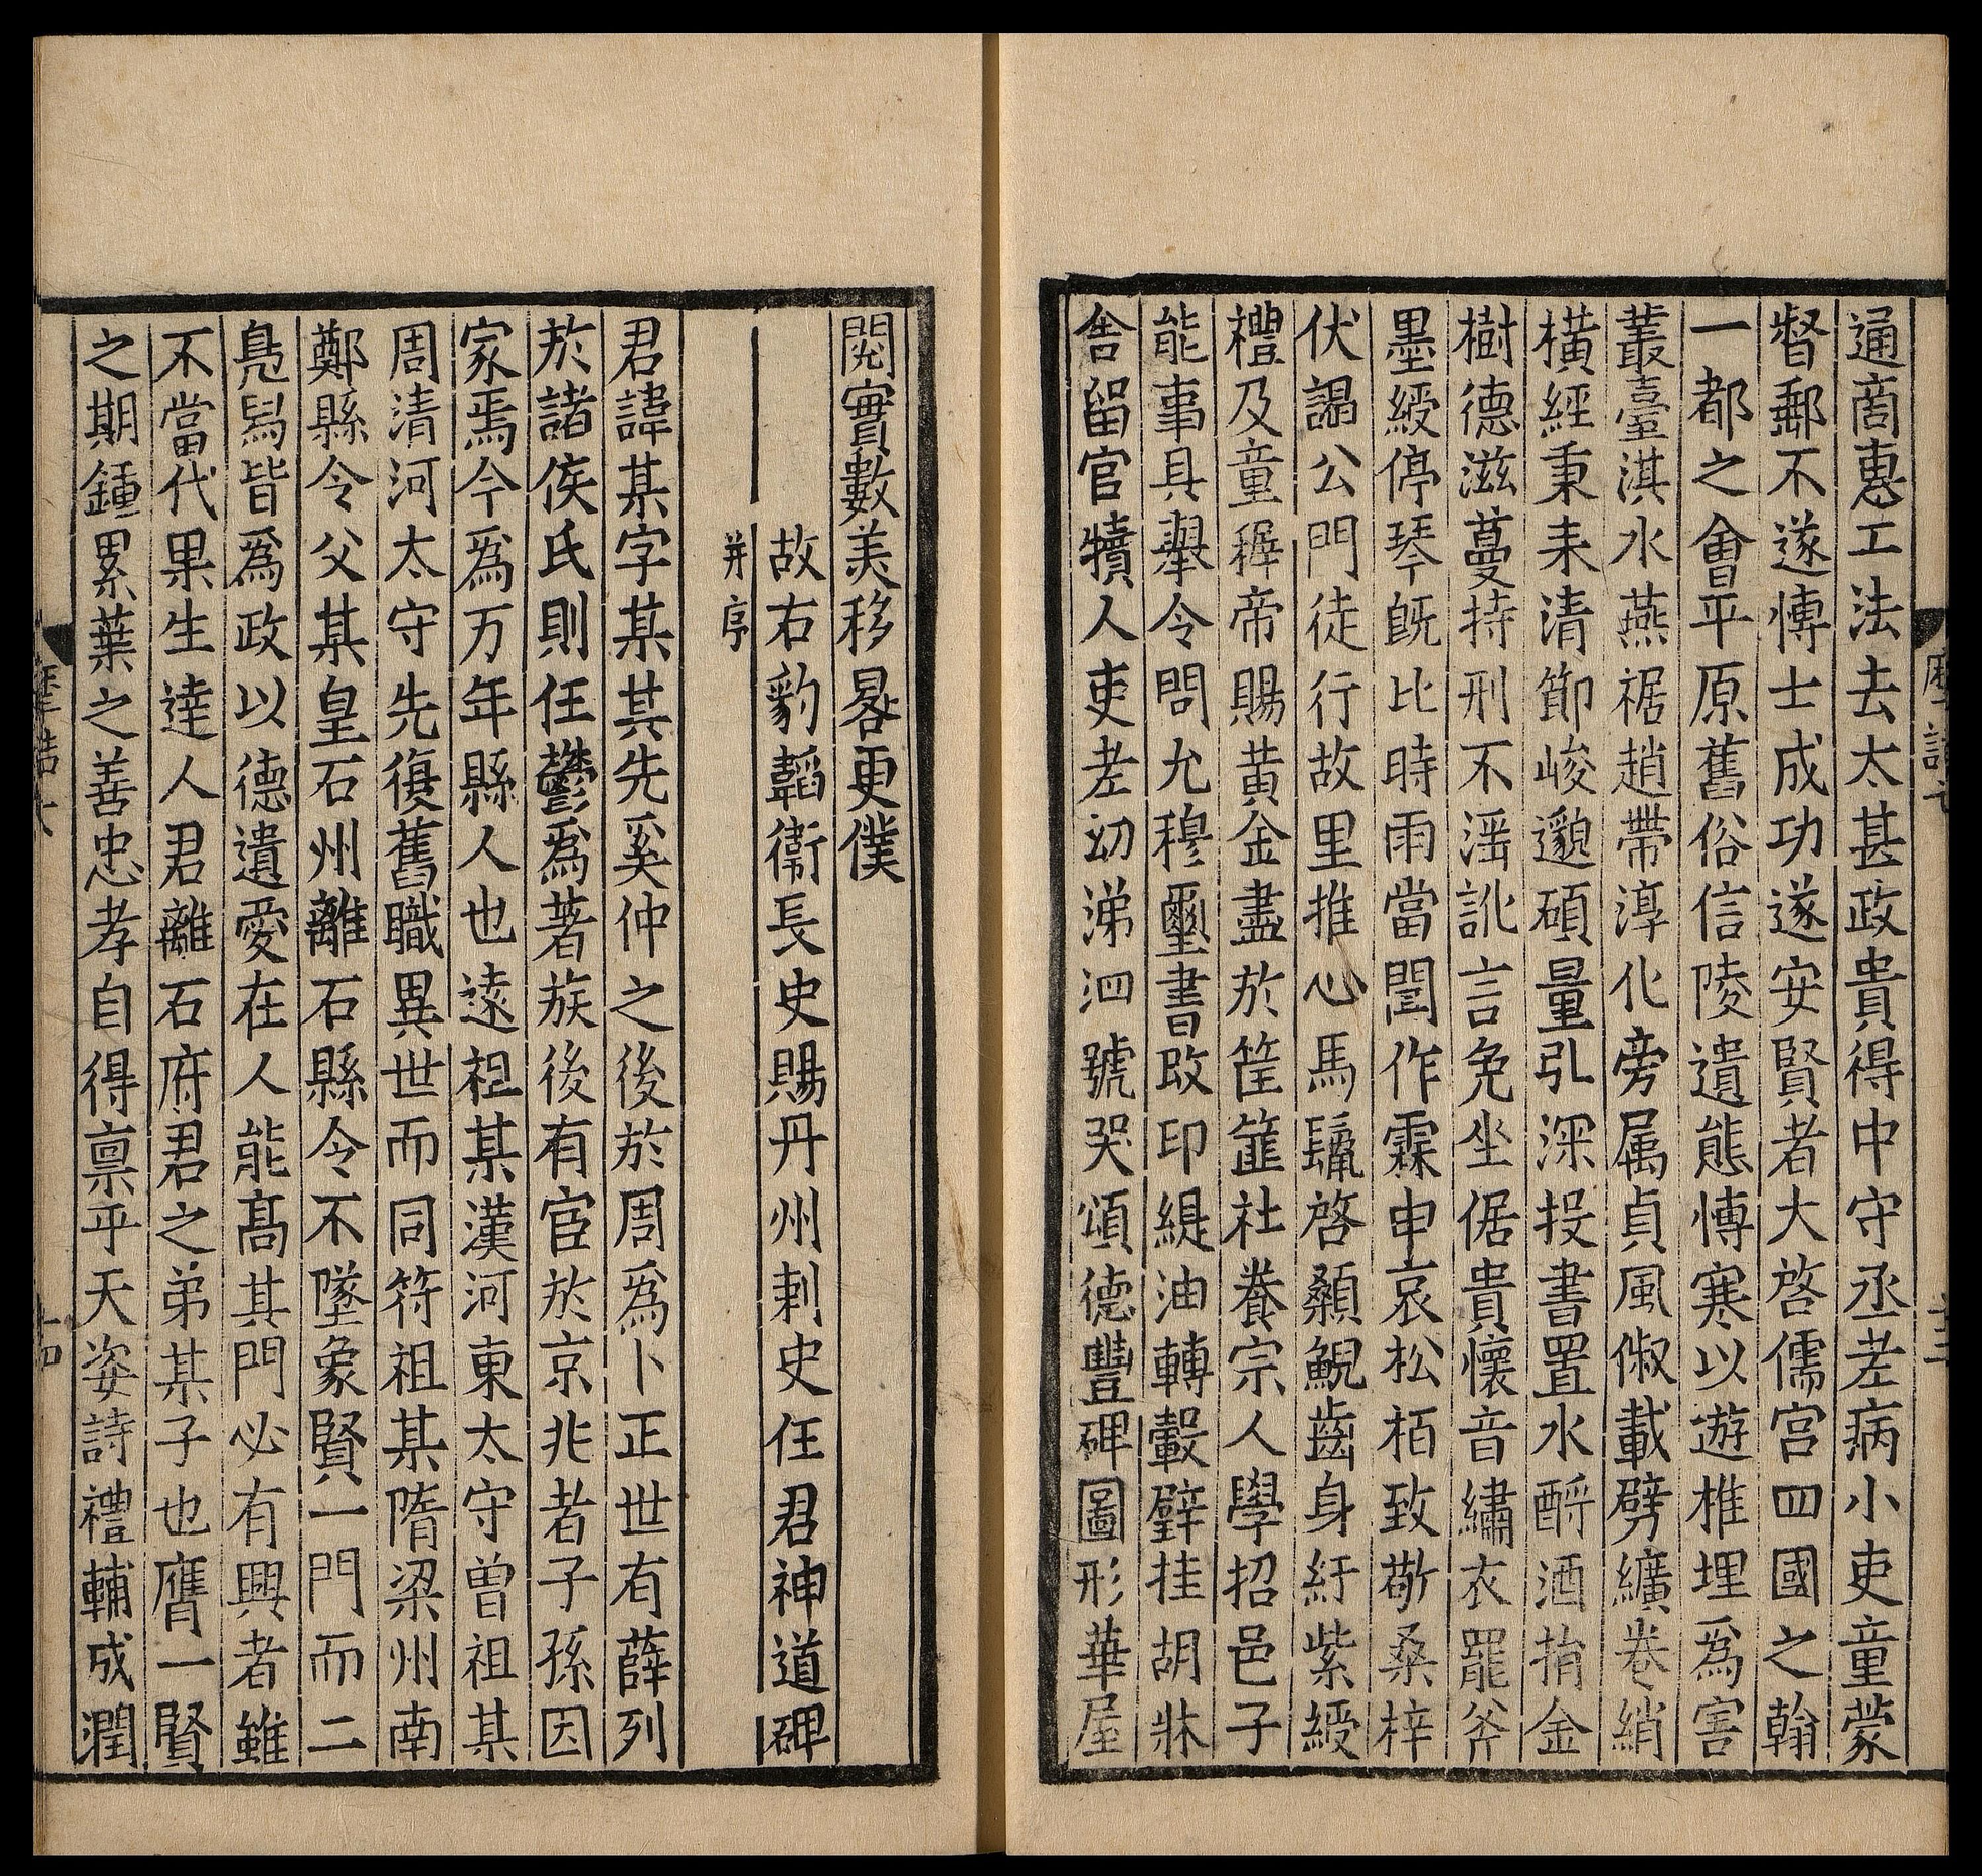 通商惠工法去太甚政貴得中守丞老病小吏童蒙
督郵不遂博士成功遂安賢者大啓儒宫四國之翰
一都之會平原舊俗信陵遺態博塞以遊椎埋爲害
叢臺淇水燕裾趙帶淳化旁属貞風俶載劈纊卷綃
橫經秉耒清節峻邈碩量弘深投書置水酹酒捐金
樹德滋蔓持刑不滛訛言免坐倨貴懷音繡衣罷斧
墨綬停琴旣比時雨當閏作霖申哀松栢致敬桑梓
伏謁公門徒行故里推心馬鬛啓顙鯢齒身紆紫綬
禮及童穉帝賜黄金盡於筐篚社養宗人學招邑子
能事具舉令問允穆璽書改印緹油轉轂壁挂胡牀
舎留官犢人吏老幼涕泗號哭頌德豐碑圖形華屋
閱實數美移晷更僕
故右豹韜衞長史賜丹州刺史任君神道碑
并序
君諱某字某其先奚仲之後於周爲卜正世有薛列
於諸侯氏則任鬱爲著族後有宦於京兆者子孫因
家焉今爲万年縣人也遠祖某漢河東太守曾祖某
周清河太守先復舊職異世而同符祖某隋梁州南
鄭縣令父某皇石州離石縣令不墜象賢一門而二
鳧舄皆爲政以德遺愛在人能髙其門必有興者雖
不當代果生達人君離石府君之弟某子也膺一賢
之期鍾累葉之善忠孝自得禀乎天姿詩禮輔成潤